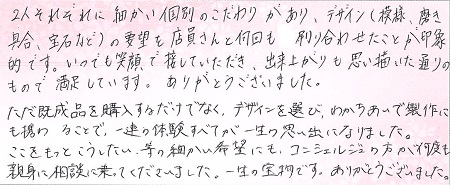 2人それぞれに細かい個別のこだわりがあり、デザイン(模様、磨き
具合、宝石など)の要望を店員さんと何回も 刷り合わせたことが印象
的です。いつでも笑顔で接していただき、出来上がりも思い描いた通りの
もので満足しています。ありがとうございました。
ただ既成品を購入するだけでなく、デザインを選び、わかちあいで製作に
も携わることで、一連の体験すべてが一生の思い出になりました。
ここをもっとこうしたい等の細かい希望にも、コンシェルジュの方が何度も
親身に相談に乗ってくださいました。一生の宝物です。ありがとうございました。